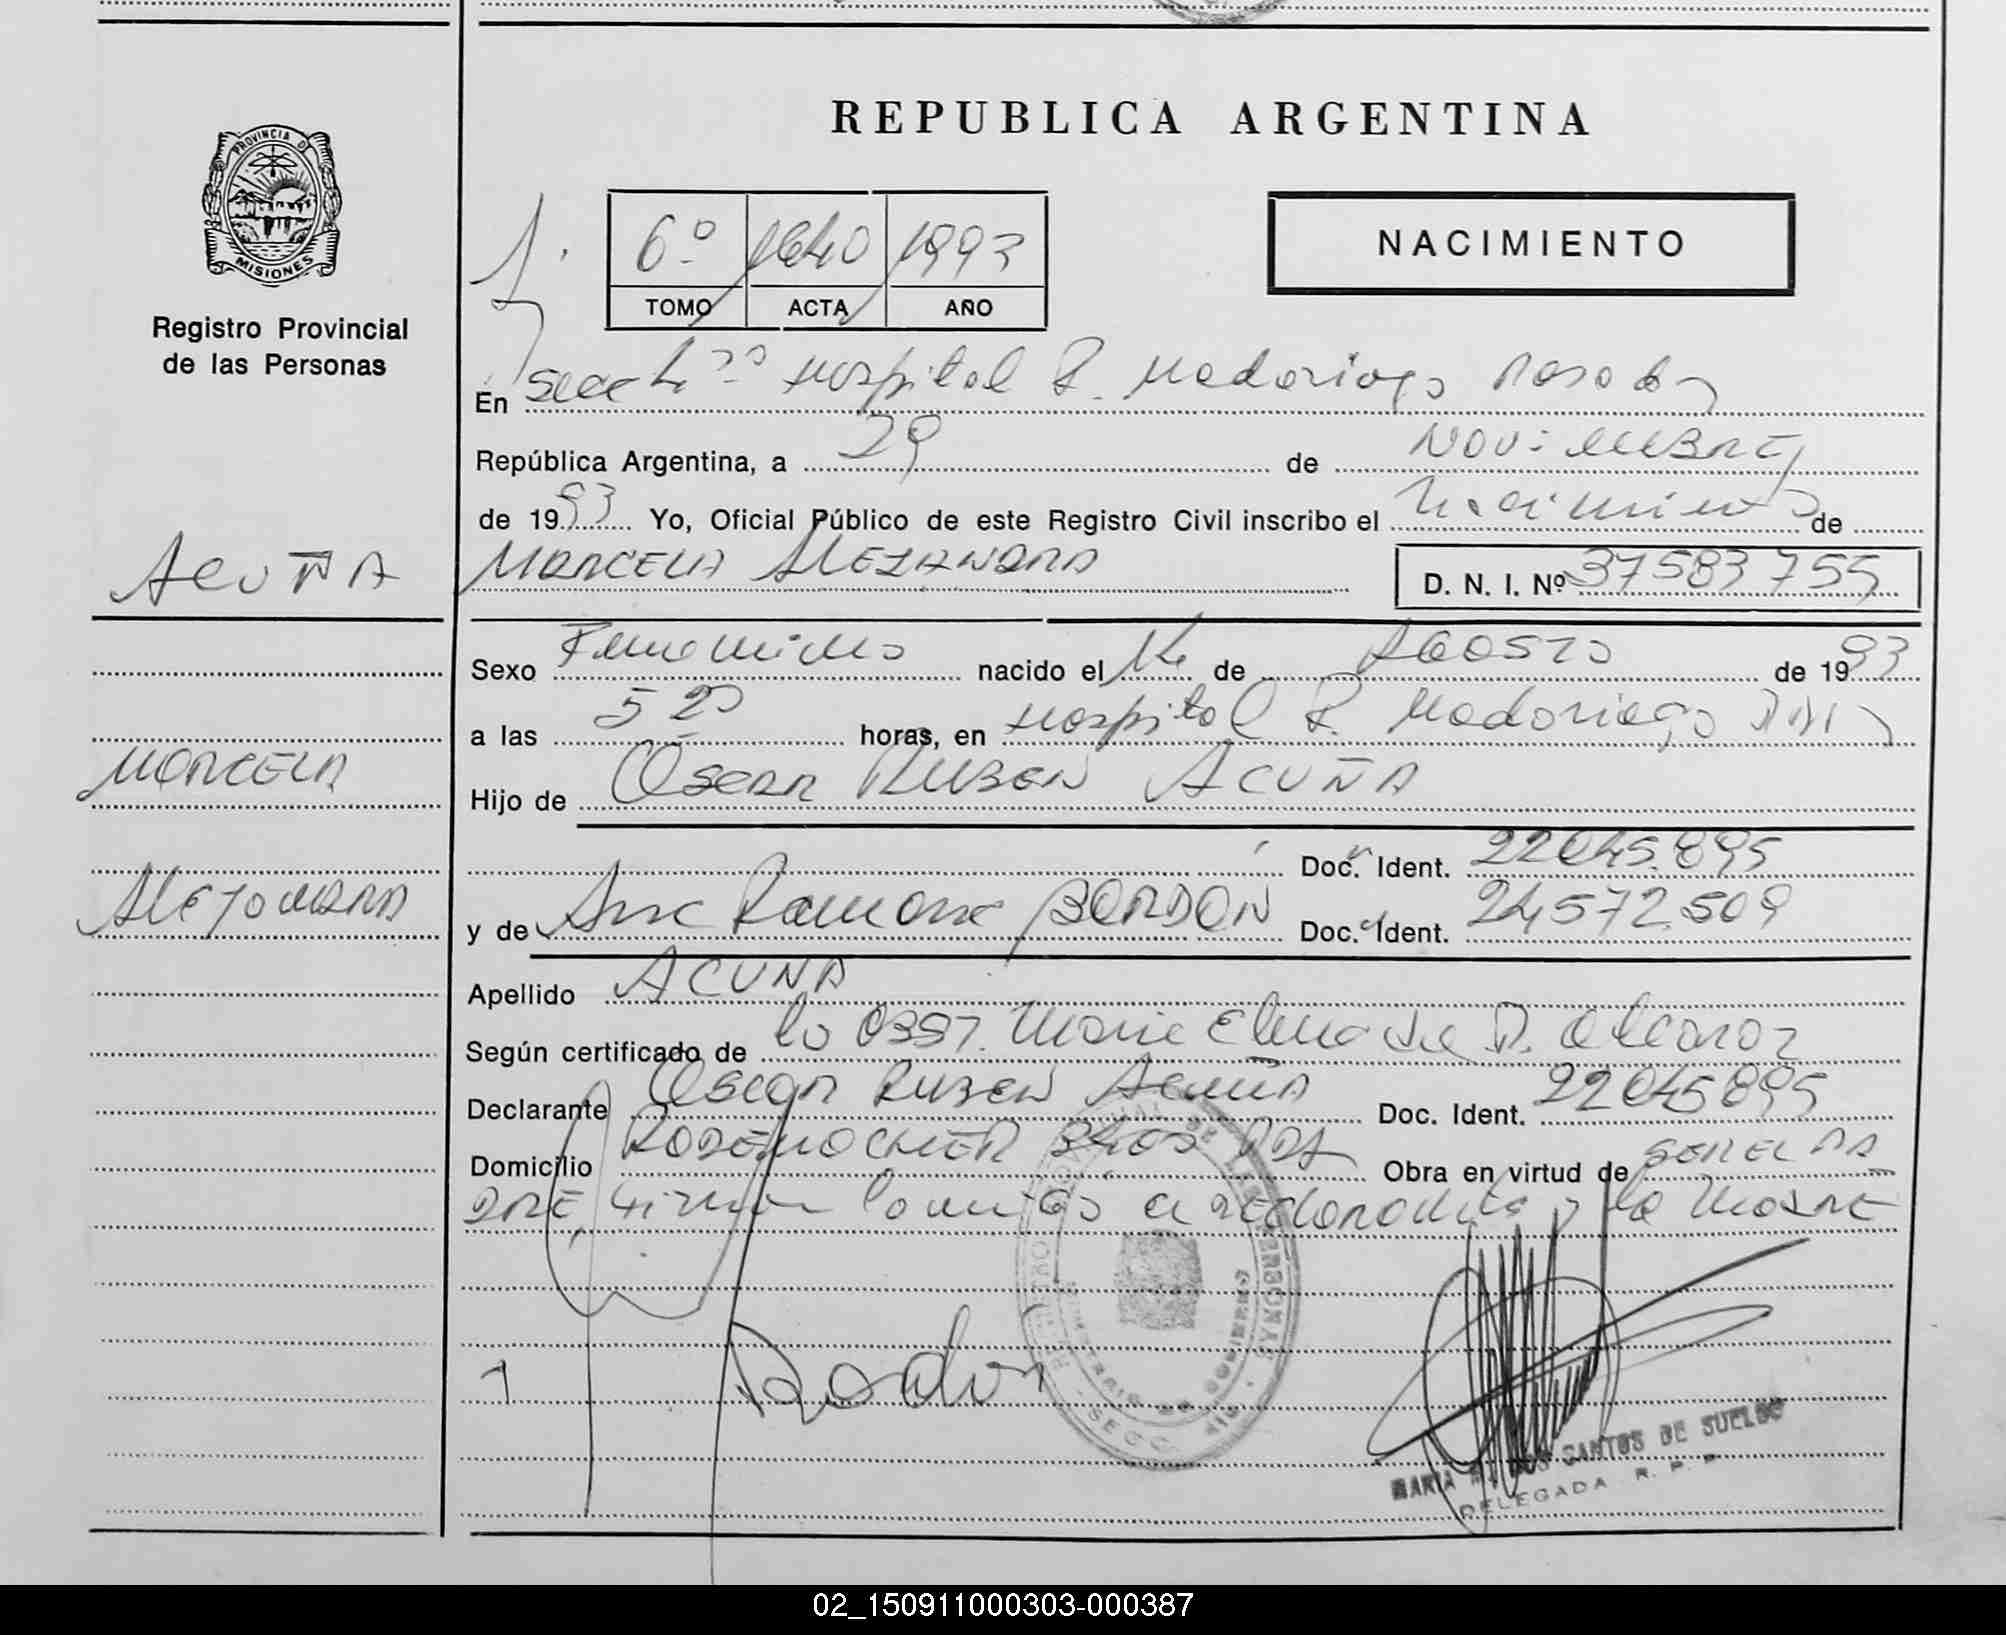 REPUBLICA ARGENTINA
PROVINCIA D
MISIONES
Registro Provincial
de las Personas
6º 1640 1993
TOMO ACTA AÑO
NACIMIENTO
En Hospital R. Madariaga Posadas
República Argentina, a 29 de NOVIEMBRE
de 1993 Yo, Oficial Público de este Registro Civil inscribo el Nacimiento de
ACUÑA
MARCELA ALEJANDRA D. N. I. Nº 37583755
Sexo Femenino nacido el 14 de AGOSTO de 1993
a las 5 20 horas, en Hospital R. Madariaga
MARCELA
Hijo de Oscar RUBEN ACUÑA
Doc. Ident. 22045.895
ALEJANDRA
y de Ana Ramona BORDON Doc. Ident. 24572.509
Apellido ACUÑA
Según certificado de la Obst. Maria Elena de D. Alcaraz
Declarante Oscar RUBEN Acuña Doc. Ident. 22045895
Domicilio Obra en virtud de SER EL PA
DRE, firman la madre
SECC.
MARIA SANTOS DE SUELDO
DELEGADA R. P. P.
02_150911000303-000387